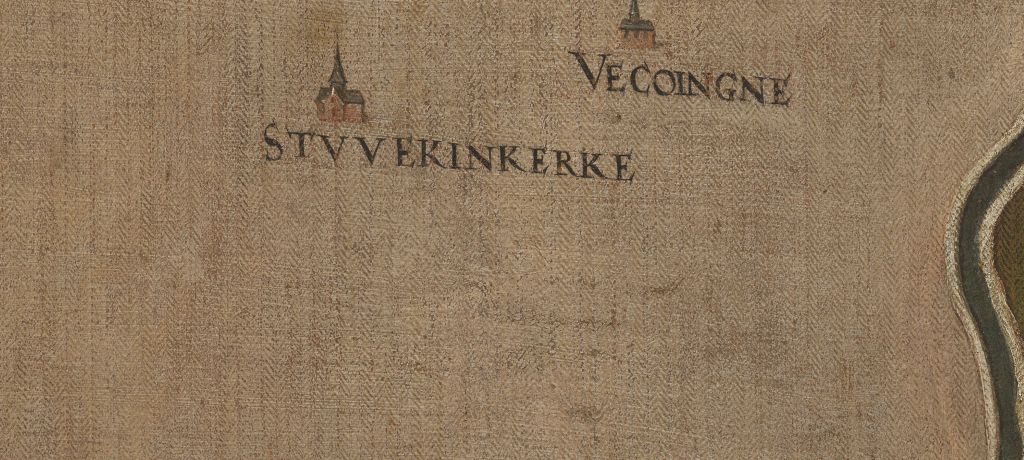 VECOINGNE
STVVEKINKERKE